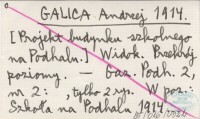 GALICA Andrzej 1914.
[Projekt budynku szkolnego
na Podhalu.] Widok. Przekrój
poziomy. — Gaz. Podh. 2,
nr 2: tylko 2 ryp. W poz.
Szkoła na Podhalu 1914.